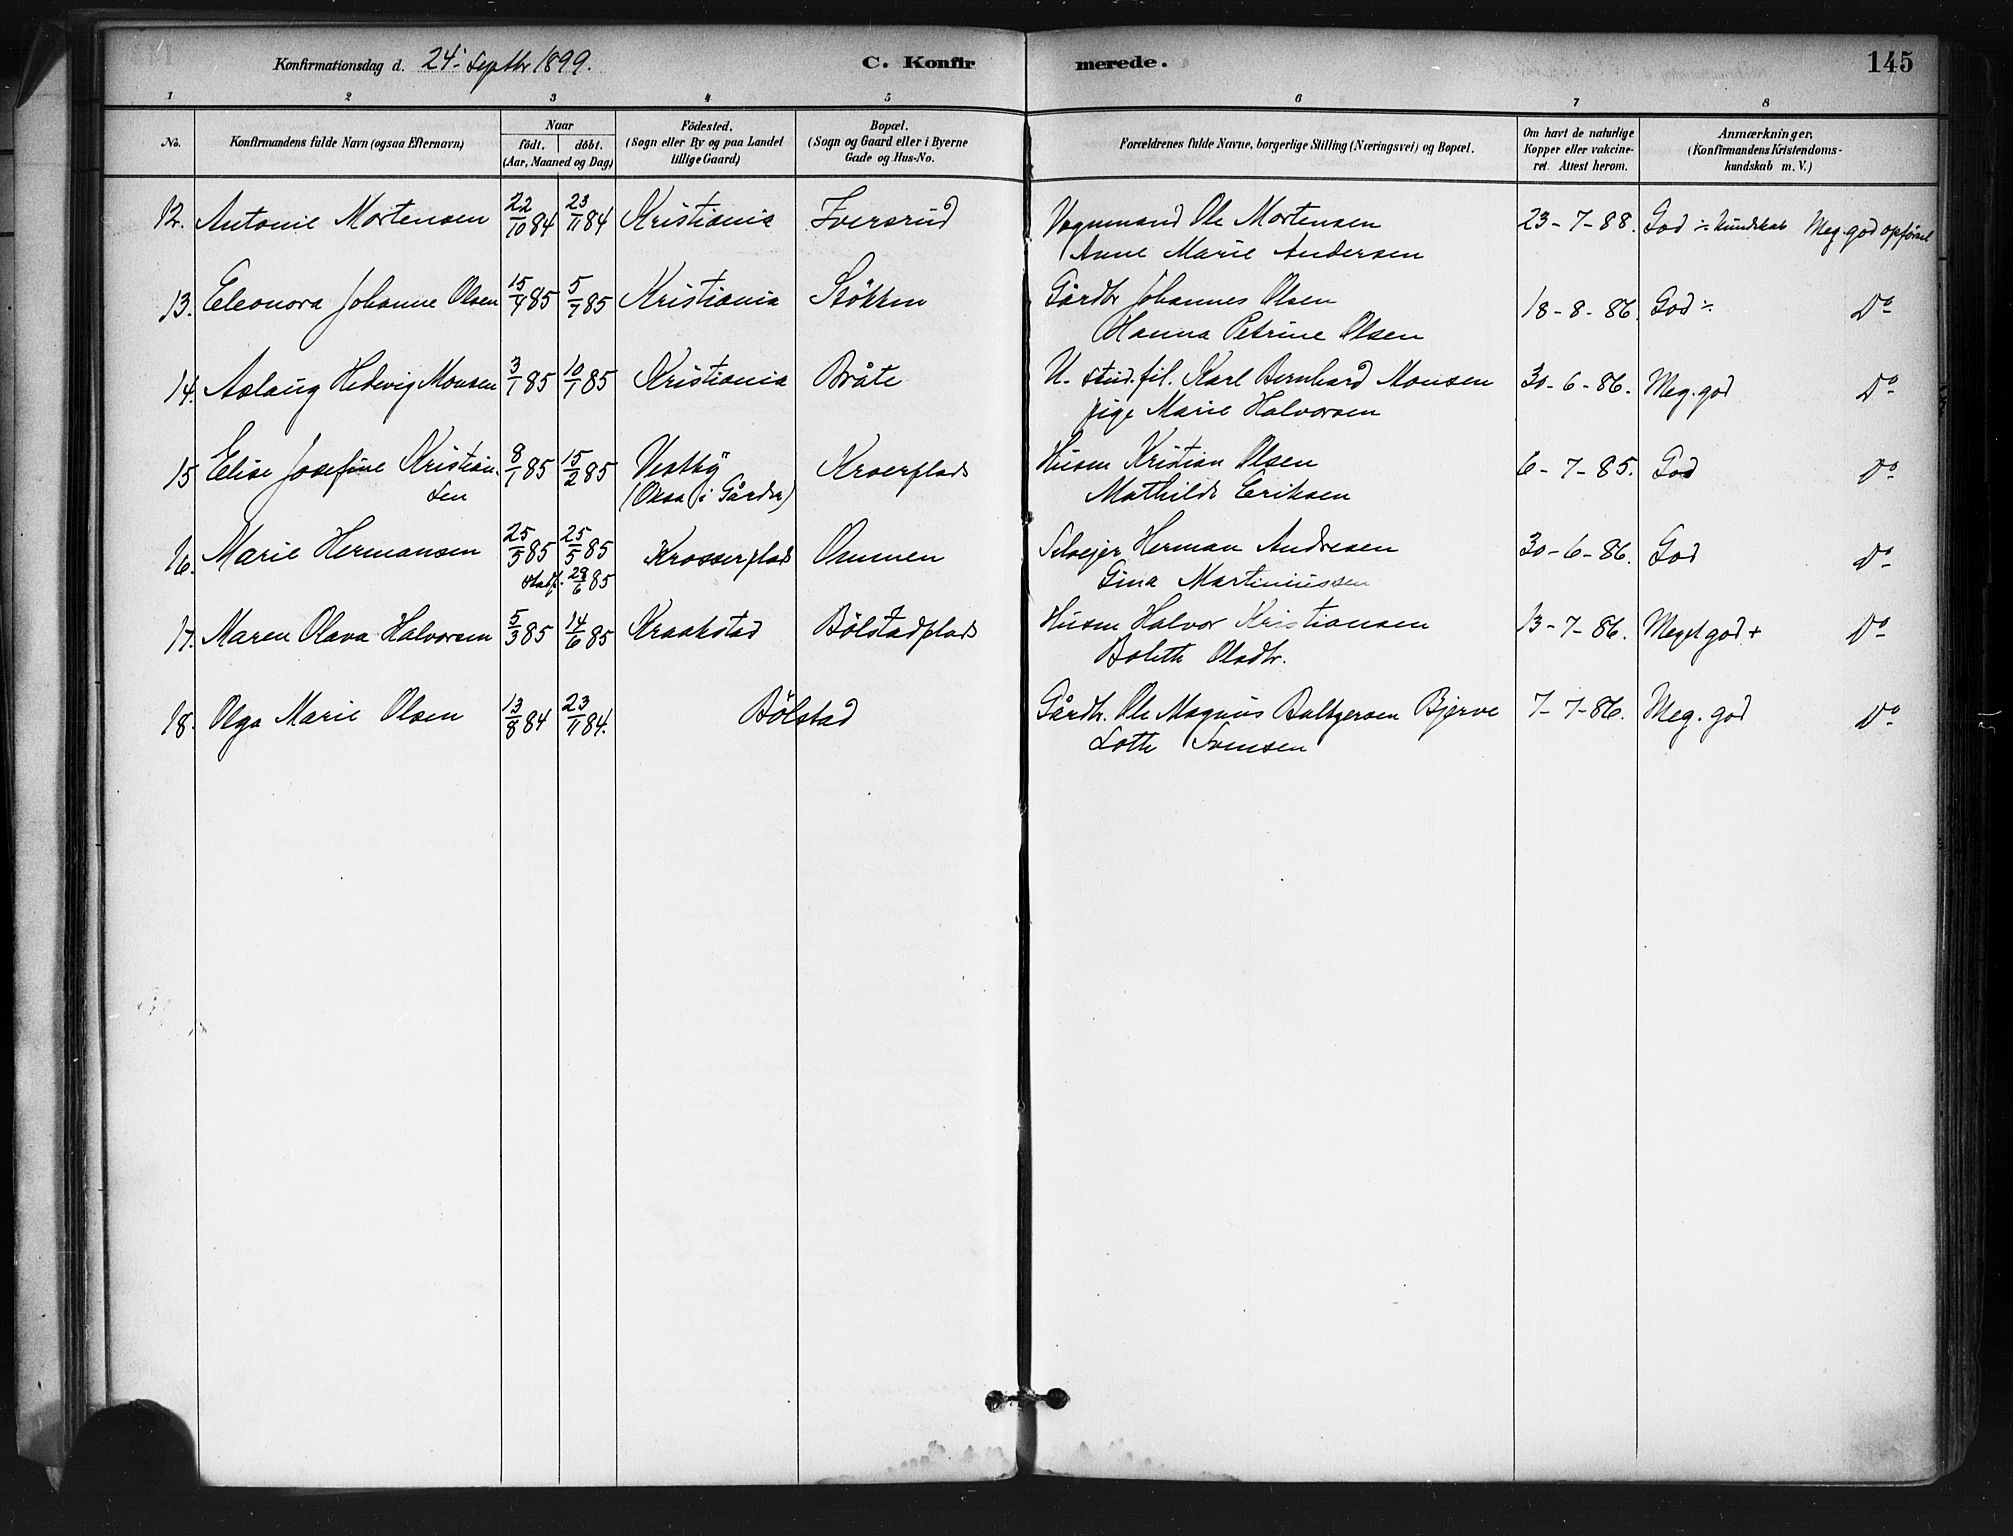 Konfirmationsdag d. 24: Septbr 1899. C. Konfirmerede. 145
1 2 3 4 5 6 7 8
No. Konfirmandens fulde Navn (ogsaa Efternavn) Naar födt. döbt. (Aar, Maaned og Dag) Födested, (Sogn eller By og paa Landet tillige Gaard) Bopæl. (Sogn og Gaard eller i Byerne Gade og Hus-No. Forældrenes fulde Navne, borgerlige Stilling (Næringsvei) og Bopæl. Om havt de naturlige Kopper eller vakcineret. Attest herom. Anmærkninger, (Konfirmandens Kristendomskundskab m. V.)
12. Antonie Mortensen 22/10 84 23/11 84 Kristiania Iversrud Vognmand Ole Mortensen 23-7-88. God ÷ kundskab Meg. god opførsel
Anne Marie Andersen
13. Eleonora Johanne Olsen 15/4 85 5/7 85 Kristiania Stökken Gårdbr Johannes Olsen 18-8-86. God ÷ Do
Hanna Petrine Olsen
14. Aslaug Hedevig Monsen 3/1 85 10/1 85 Kristiania Bråte U. stud. fil. Karl Bernhard Monsen 30-6-86. Meg. god Do
pige Marie Halvorsen
15 Elise Josefine Kristian- 8/1 85 15/2 85 Vestby Kroerplads Husm Kristian Olsen 6-7-85. God Do
sen (Oksa i Gårder) Mathilde Eriksen
16. Marie Hermansen 25/5 85 25/5 85 Krosserplads Ommen Selvejer Herman Andresen 30-6-86. God Do
stadf. 28/6 85 Gina Martiniussen
17. Maren Olava Halvorsen 5/3 85 14/6 85 Kraakstad Bölstadplads Husm Halvor Kristiansen 13-7-86. Meget god + Do
Boleth Olsdtr.
18. Olga Marie Olsen 13/8 84 23/11 84. Bölstad Gårdbr. Ole Magnus Baltzersen Bjerve 7-7-86. Meg. god Do
Lotte Svensen